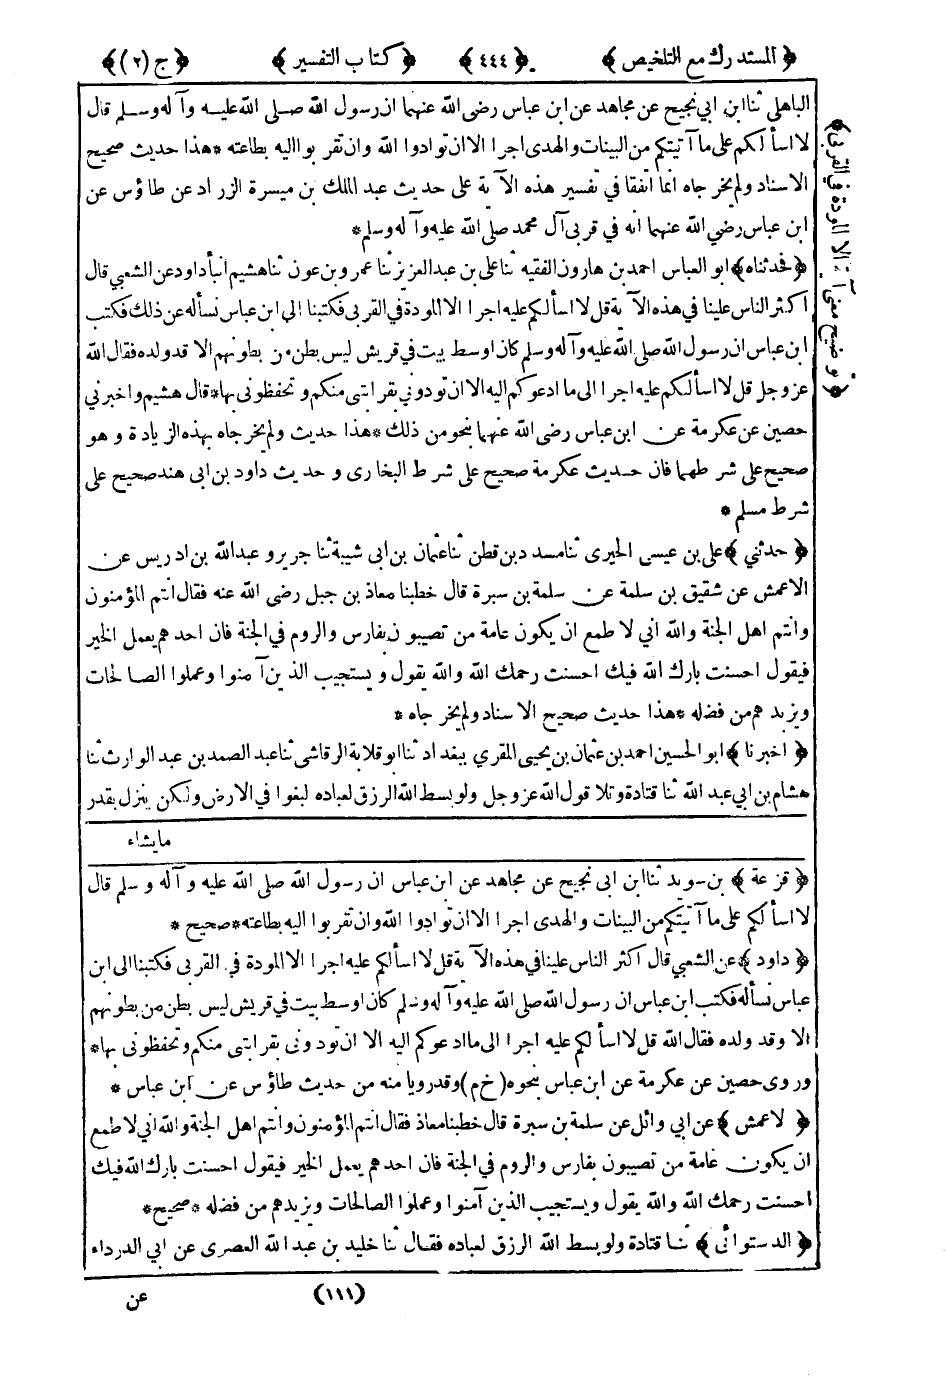 ﴿ المستدرك مع التلخيص ﴾ ﴿ ٤٤٤ ﴾ ﴿ كتاب التفسير ﴾ ﴿ ج (٢) ﴾
الباهلي ثنا ابن ابي نجيح عن مجاهد عن ابن عباس رضى الله عنهما ان رسول الله صلى الله عليه وآله وسلم قال
لا اسألكم على ما آتيتكم من البينات والهدى اجرا الا ان توادوا الله وان تقربوا اليه بطاعته * هذا حديث صحيح
الاسناد ولم يخرجاه انما اتفقا في تفسير هذه الآية على حديث عبد الملك بن ميسرة الزراد عن طاؤس عن
ابن عباس رضي الله عنهما انه في قربى آل محمد صلى الله عليه وآله وسلم *
﴿ فحدثناه ﴾ ابو العباس احمد بن هارون الفقيه ثنا على بن عبد العزيز ثنا عمرو بن عون ثنا هشيم انبأ داود عن الشعبي قال
اكثر الناس علينا في هذه الآية قل لا اسألكم عليه اجرا الا المودة في القربى فكتبنا الى ابن عباس نسأله عن ذلك فكتب
ابن عباس ان رسول الله صلى الله عليه وآله وسلم كان اوسط بيت في قريش ليس بطن من بطونهم الا قد ولده فقال الله
عز وجل قل لا اسألكم عليه اجرا الى ما ادعوكم اليه الا ان تودوني بقرابتي منكم وتحفظونى بها * قال هشيم واخبرني
حصين عن عكرمة عن ابن عباس رضى الله عنهما بنحو من ذلك * هذا حديث ولم يخرجاه بهذه الزيادة و هو
صحيح على شرطهما فان حديث عكرمة صحيح على شرط البخارى و حديث داود بن ابى هند صحيح على
شرط مسلم *
﴿ حدثني ﴾ على بن عيسى الحيرى ثنا مسدد بن قطن ثنا عثمان بن ابى شيبة ثنا جرير و عبد الله بن ادريس عن
الاعمش عن شقيق بن سلمة عن سلمة بن سبرة قال خطبنا معاذ بن جبل رضى الله عنه فقال انتم المؤمنون
وانتم اهل الجنة والله اني لاطمع ان يكون عامة من تصيبون بفارس والروم في الجنة فان احدهم يعمل الخير
فيقول احسنت بارك الله فيك احسنت رحمك الله والله يقول ويستجيب الذين آمنوا وعملوا الصالحات
ويزيدهم من فضله * هذا حديث صحيح الاسناد ولم يخرجاه *
﴿ اخبرنا ﴾ ابو الحسين احمد بن عثمان بن يحيى المقري ببغداد ثنا ابو قلابة الرقاشى ثنا عبد الصمد بن عبد الوارث ثنا
هشام بن ابي عبد الله ثنا قتادة وتلا قول الله عز وجل ولو بسط الله الرزق لعباده لبغوا في الارض ولكن ينزل بقدر
مايشاء
﴿ توضيح معنى آية الا المودة في القربى ﴾
﴿ قزعة ﴾ بن سويد ثنا ابن ابى نجيح عن مجاهد عن ابن عباس ان رسول الله صلى الله عليه وآله وسلم قال
لا اسألكم على ما آتيتكم من البينات والهدى اجرا الا ان توادوا الله وان تقربوا اليه بطاعته * صحيح *
﴿ داود ﴾ عن الشعبي قال اكثر الناس علينا في هذه الآية قل لا اسألكم عليه اجرا الا المودة في القربى فكتبنا الى ابن
عباس نسأله فكتب ابن عباس ان رسول الله صلى الله عليه وآله وسلم كان اوسط بيت في قريش ليس بطن من بطونهم
الا وقد ولده فقال الله قل لا اسألكم عليه اجرا الى ما ادعوكم اليه الا ان تودونى بقرابتى منكم وتحفظونى بها *
وروى حصين عن عكرمة عن ابن عباس بنحوه (خ م) وقد رويا منه من حديث طاؤس عن ابن عباس *
﴿ لاعمش ﴾ عن ابي وائل عن سلمة بن سبرة قال خطبنا معاذ فقال انتم المؤمنون وانتم اهل الجنة والله اني لاطمع
ان يكون عامة من تصيبون بفارس والروم في الجنة فان احدهم يعمل الخير فيقول احسنت بارك الله فيك
احسنت رحمك الله والله يقول ويستجيب الذين آمنوا وعملوا الصالحات ويزيدهم من فضله * صحيح *
﴿ الدستوائي ﴾ ثنا قتادة ولو بسط الله الرزق لعباده فقال ثنا خليد بن عبد الله العصرى عن ابي الدرداء
(١١١) عن